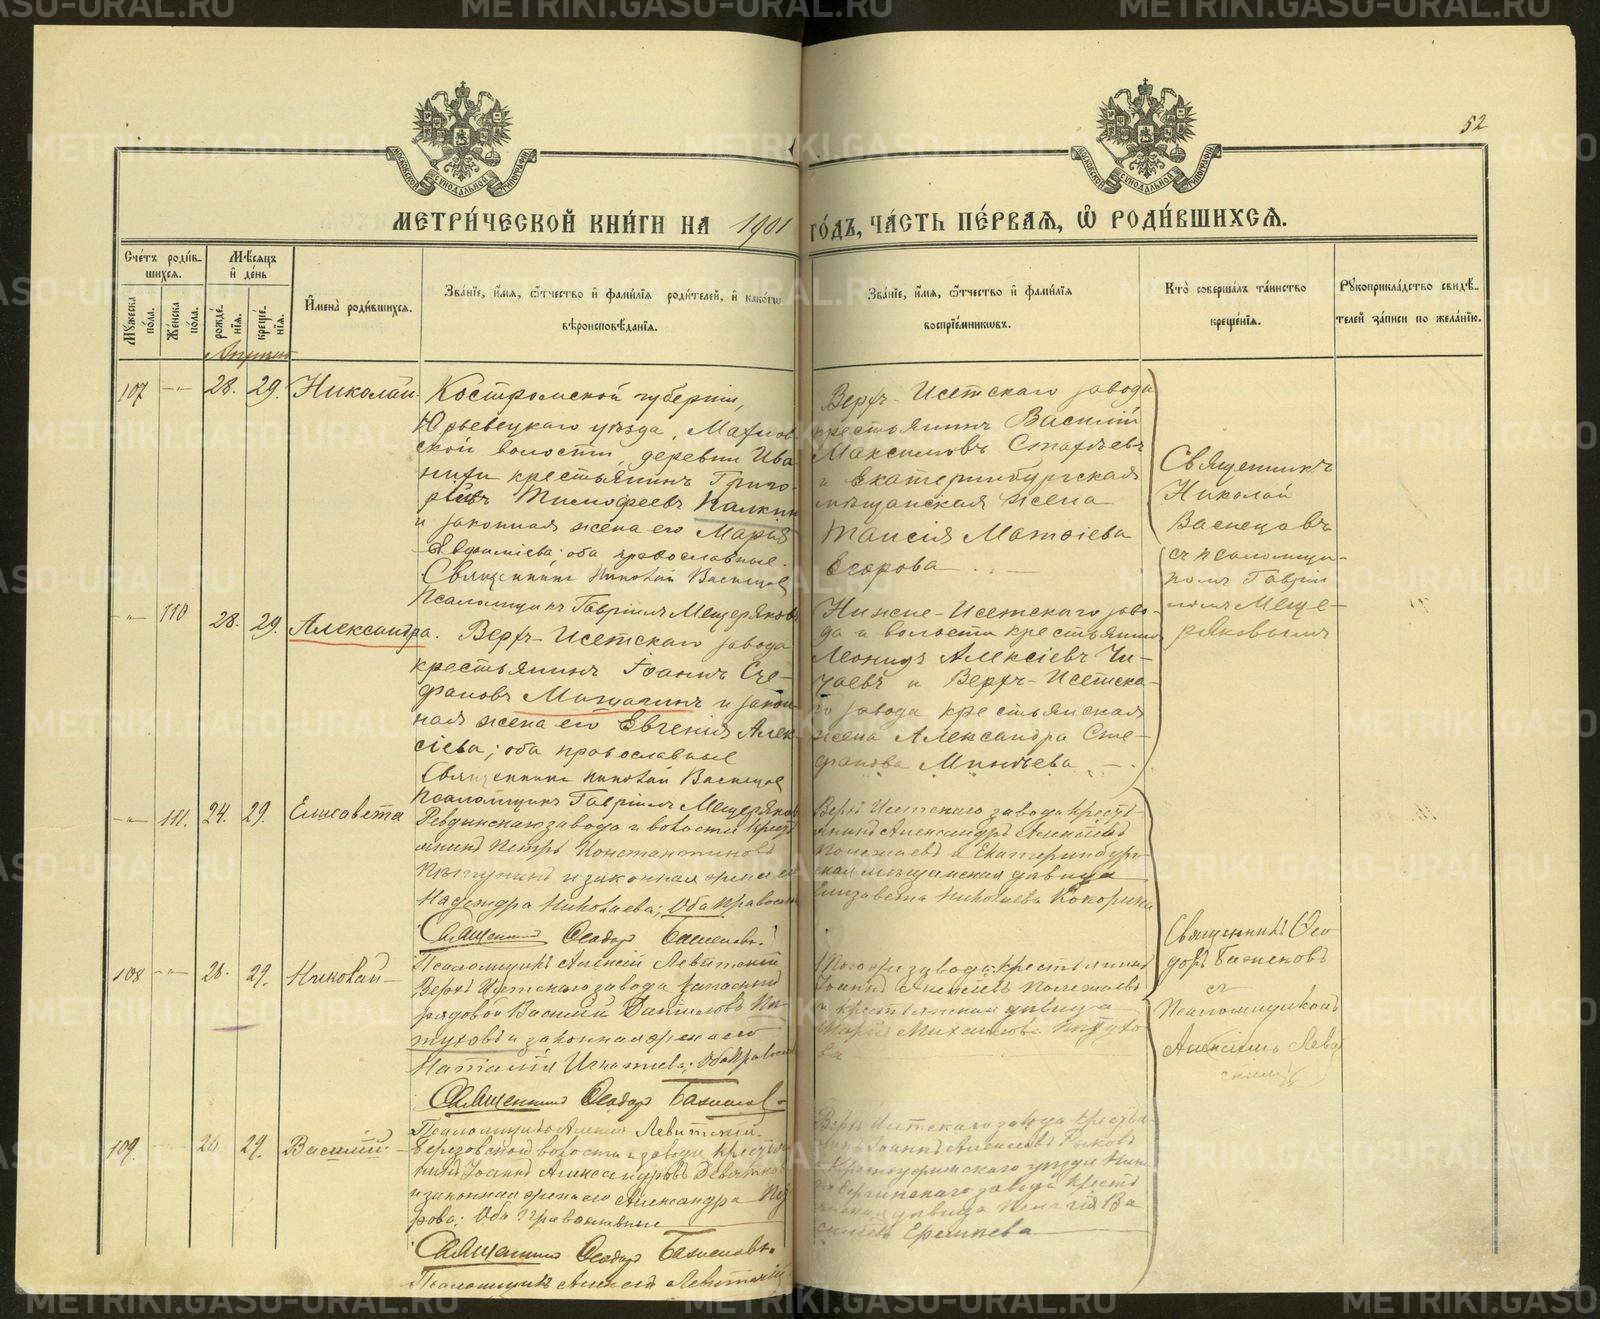 52
МЕТРИ́ЧЕСКОЙ КНИ́ГИ НА 1901 ГО́ДЪ, ЧА́СТЬ ПЕ́РВАЯ, Ѽ РОДИ́ВШИХСЯ.
Сче́тъ роди́в-
шихся.
Мужеска по́ла.
Же́нска по́ла.
Мѣ́сяцъ
и҆ де́нь
рожде́-
нїя.
креще́-
нїя.
И҆мена̀ роди́вшихся.
Зва́нїе, и҆́мя, ѻ҆́тчество и҆ фами́лїя роди́телей, и҆ како́гѡ
вѣроисповѣ́данїя.
Зва́нїе, и҆́мя, ѻ҆́тчество и҆ фами́лїя
воспрїе́мникѡвъ.
Кто̀ соверша́лъ та́инство
креще́нїя.
Рꙋкоприкла́дство свидѣ́-
телей за́писи по жела́нїю.
107 28. 29. Николай
Костромской губерніи,
Юрьевецкаго уѣзда,
ской волости, деревни Ива
нихи крестьянинъ Григо-
рій Тимофеевъ Палкин
и законная жена его Марія
Евфиміева; оба православные.
Священникъ Николай Васнецов
Псаломщикъ Гавріилъ Мещеряковъ
Верхъ-Исетскаго завода
крестьянинъ Василій
Максимовъ
и Екатеринбургская
мѣщанская жена
Таисія Матѳіева
Егорова
Священникъ
Николай
Васнецовъ
съ псаломщи-
комъ Гаврiи
ломъ Меще-
ряковымъ
110 28. 29. Александра.
Верхъ-Исетскаго завода
крестьянинъ Іоаннъ Сте-
фановъ и закон
ная жена его Евгенія Алек-
сіева; оба православные
Священникъ Николай Васнецов
Псаломщикъ Гавріилъ Мещеряков
Нижне-Исетскаго заво-
да и волости крестьянин
Леонидъ Алексіевъ Чи-
и Верхъ-Исетска-
го завода крестьянская
жена Александра Сте-
фанова
111. 24. 29. Елисавета
Ревдинскаго завода и волости крест
янинъ Петръ Константиновъ
и законная жена его
Надежда Николаева; Оба православн
Священникъ Ѳеодоръ Баженовъ.
Псаломщикъ Алексій Левитскій
Верхъ Исетскаго завода кресть-
янинъ Александръ Алексѣевъ
Полежаевъ и Екатеринбург-
ская мѣщанская дѣвица
Елизавета Николаева Кокорина
Священникъ Ѳео
доръ Баженовъ
съ
Псаломщикомъ
Алексіемъ Леви
скимъ
108 28. 29. Николай
Верхъ Исетскаго завода запасный
рядовой Василій Даніиловъ Пѣ-
туховъ и законная жена его
Наталія Игнатіева; Оба правосл
Священникъ Ѳеодоръ Баженов-
Псаломщикъ Алексій Левитскій.
Того же завода крестьянинъ
Іоаннъ Алексѣевъ Полежаевъ
и крестьянская дѣвица
Марія Михаилова Пѣтухо-
ва
109. 26 29. Василій
Березовской волости и завода крестья
нинъ Іоаннъ Александровъ Девятков
и законная жена его Александра
рова; Оба православные
Священникъ Ѳеодоръ Баженовъ.
Псаломщикъ Алексій Левитскій
Верхъ Исетскаго завода кресть-
янинъ Іоаннъ Алексѣевъ
Красноуфимскаго уѣзда Ниж
Сергинскаго завода крест
янская дѣвица Ва
Еремѣева